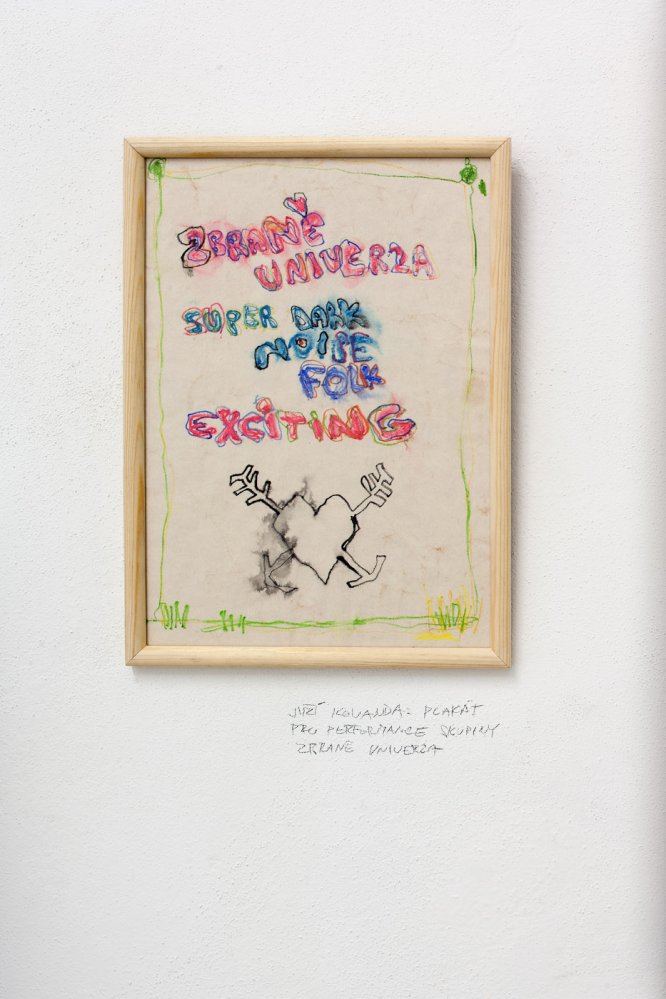 ZBRANĚ
UNIVERZA
SUPER DARK
NOISE
FOLK
EXCITING
JIŘÍ KOVANDA: PLAKÁT
PRO PERFORMANCE SKUPINY
ZBRANĚ UNIVERZA